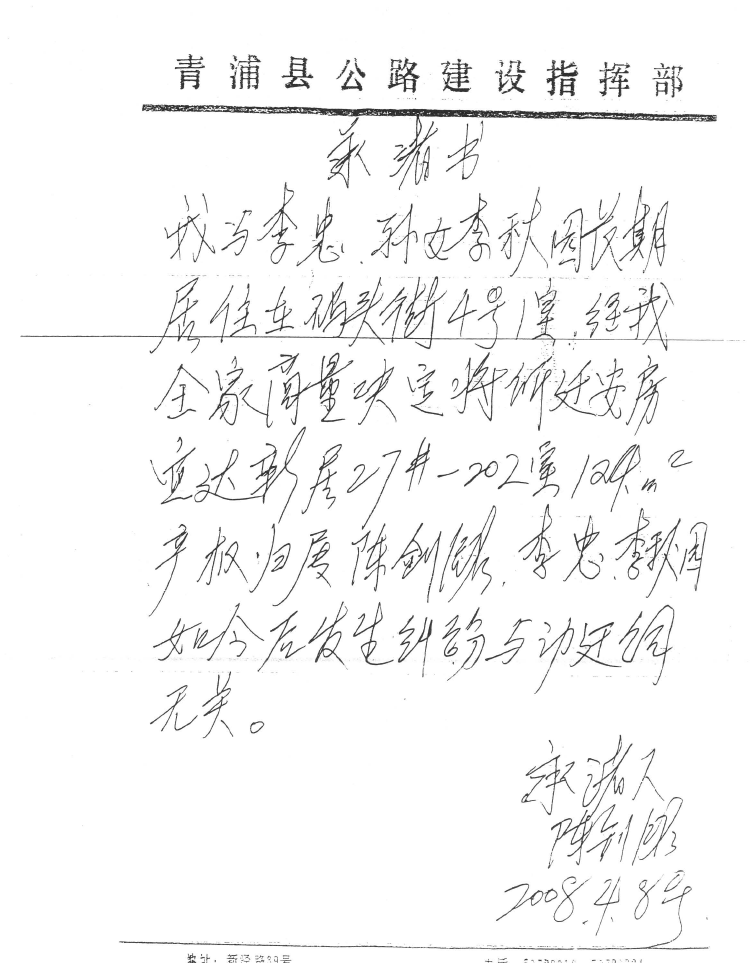 青浦县公路建设指挥部
承诺书
我与李忠、孙女李秋园长期
居住在码头街4号1室、经我
全家商量决定将所迁安房
宜达新居27#-202室124m²
产权归属陈剑、李忠、李秋园
如今后发生纠纷与动迁组
无关。
承诺人
陈剑
2008.4.8号
地址：新泾路39号
电话